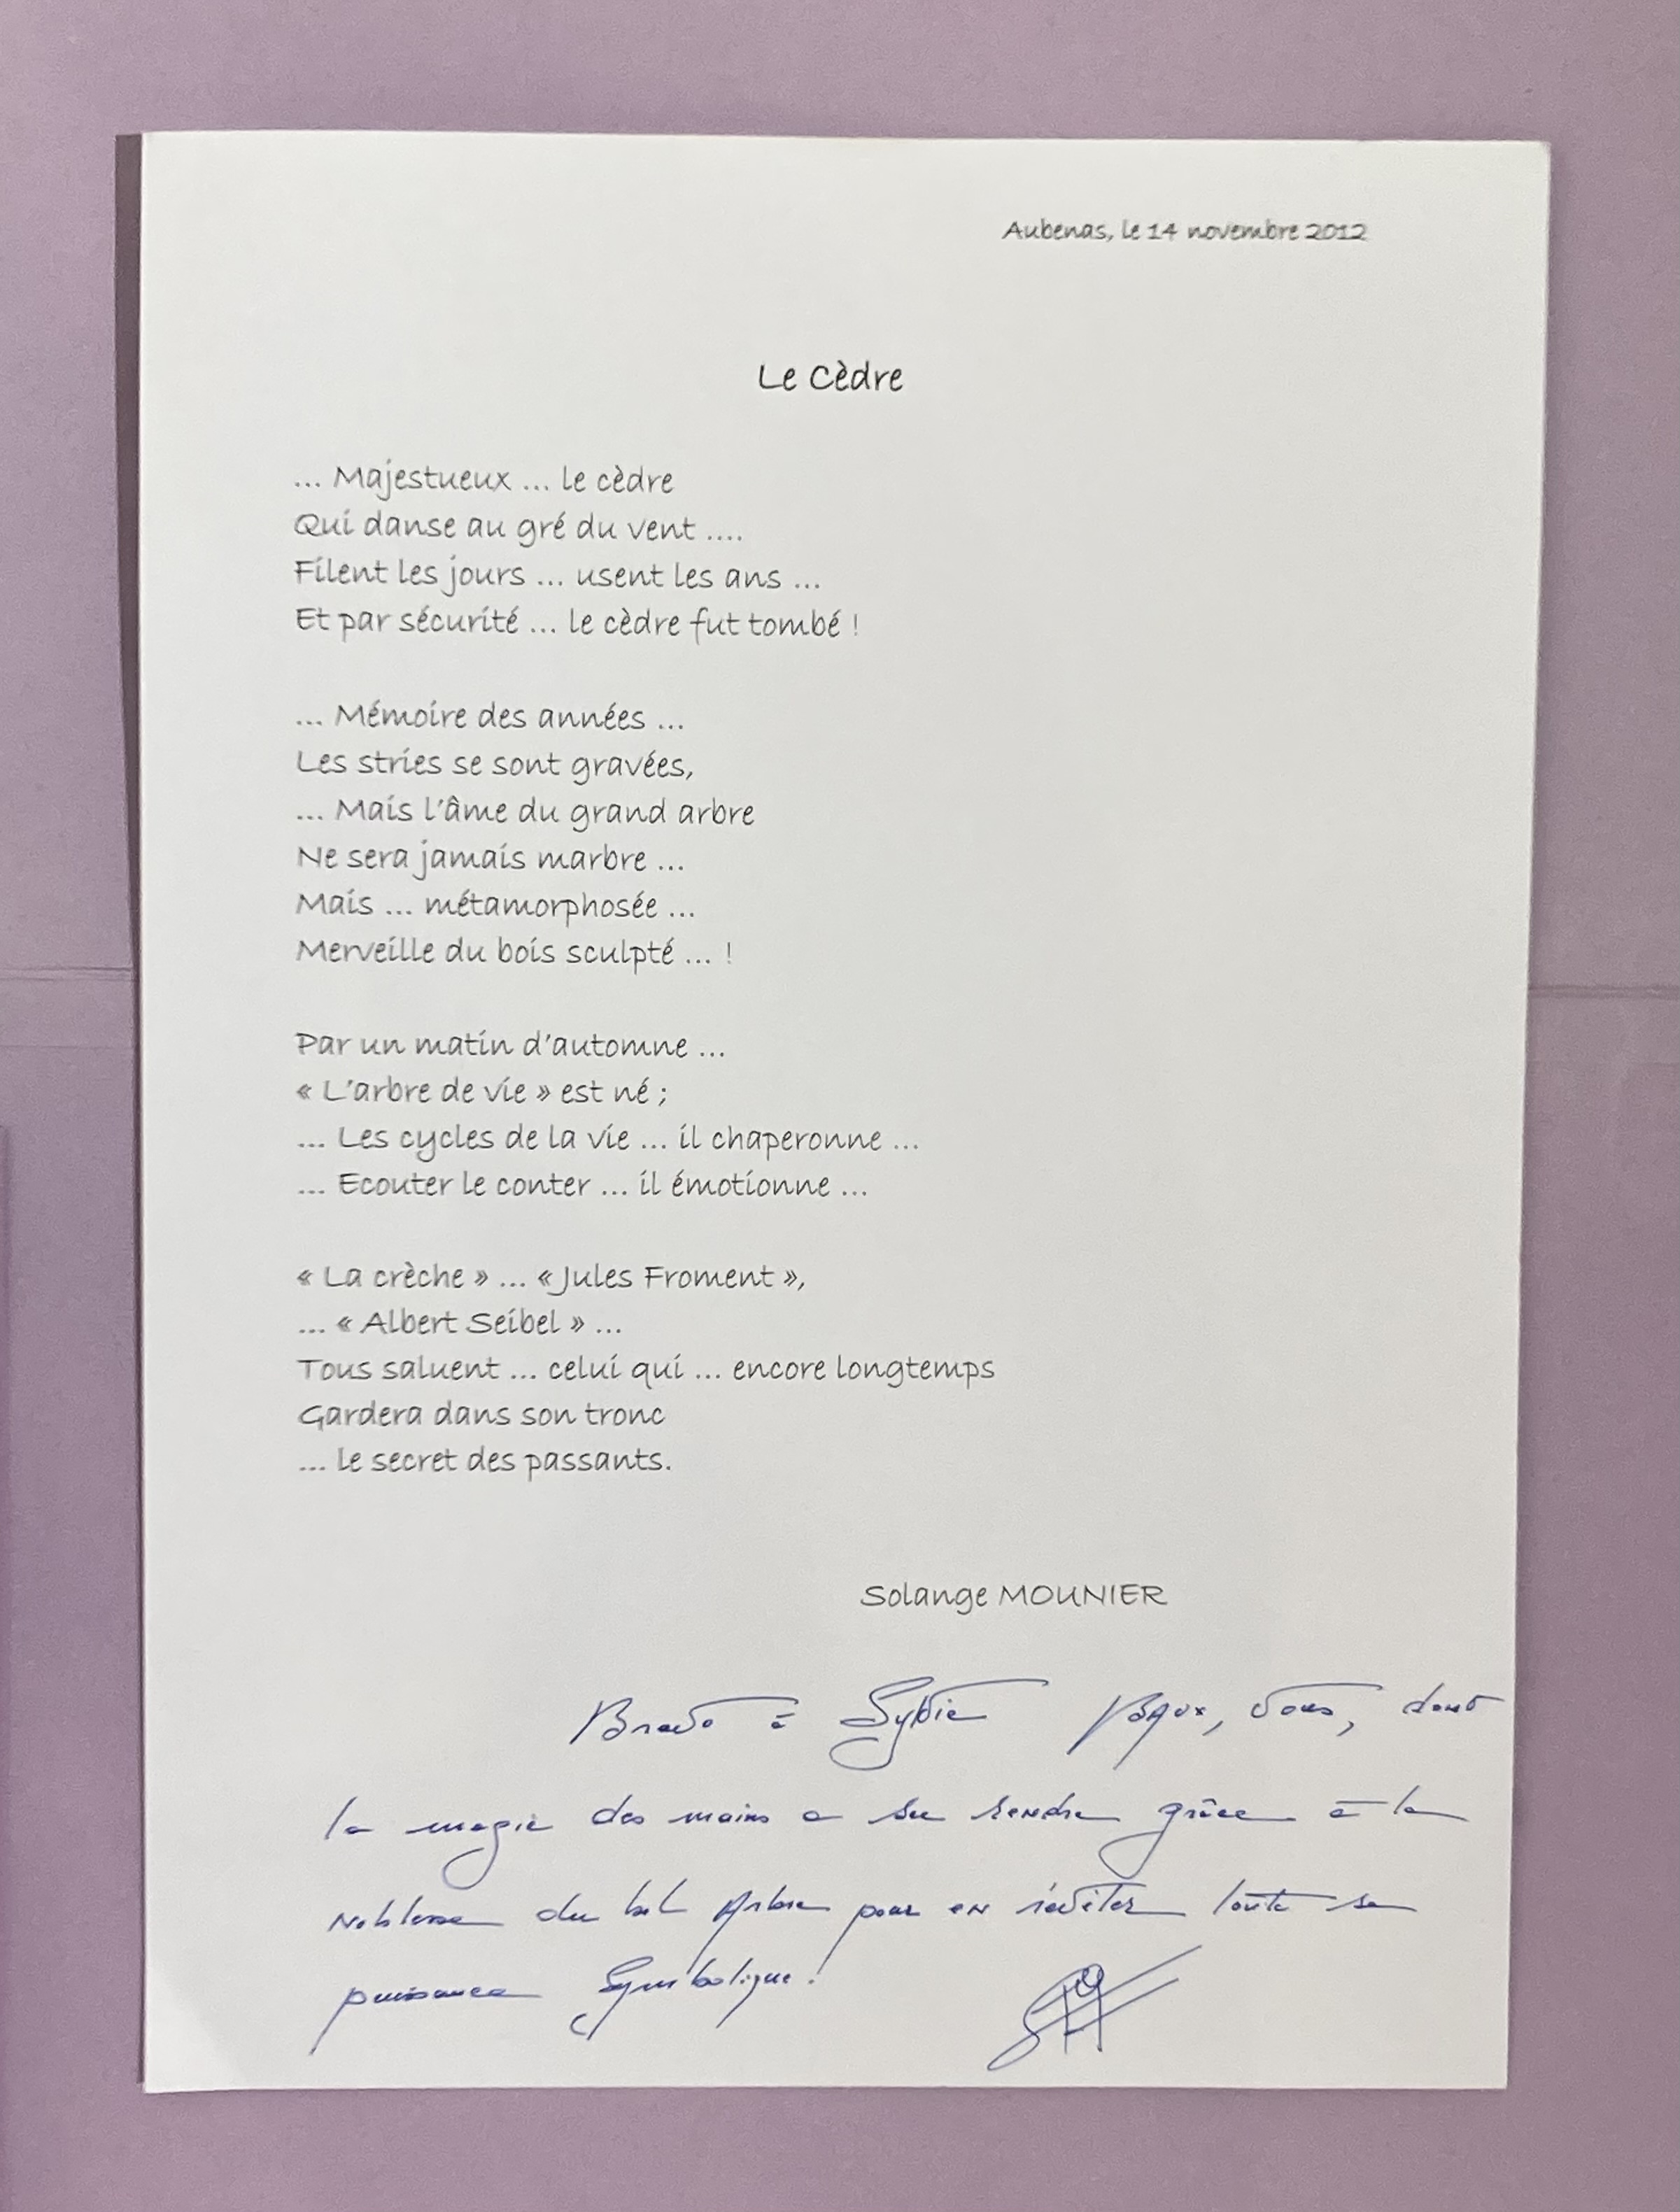 Aubenas, le 14 novembre 2012
Le Cèdre
... Majestueux ... le cèdre
Qui danse au gré du vent ....
Filent les jours ... usent les ans ...
Et par sécurité ... le cèdre fut tombé !
... Mémoire des années ...
Les stries se sont gravées,
... Mais l'âme du grand arbre
Ne sera jamais marbre ...
Mais ... métamorphosée ...
Merveille du bois sculpté ... !
Par un matin d'automne ...
« L'arbre de vie » est né ;
... Les cycles de la vie ... il chaperonne ...
... Ecouter le conter ... il émotionne ...
« La crèche » ... « Jules Froment »,
... « Albert Seibel » ...
Tous saluent ... celui qui ... encore longtemps
Gardera dans son tronc
... le secret des passants.
Solange MOUNIER
Bravo à Sylvie Vaux, vous, dont
la magie des mains a su rendre grâce à la
Noblesse du bel Arbre pour en révéler toute sa
puissance Symbolique !